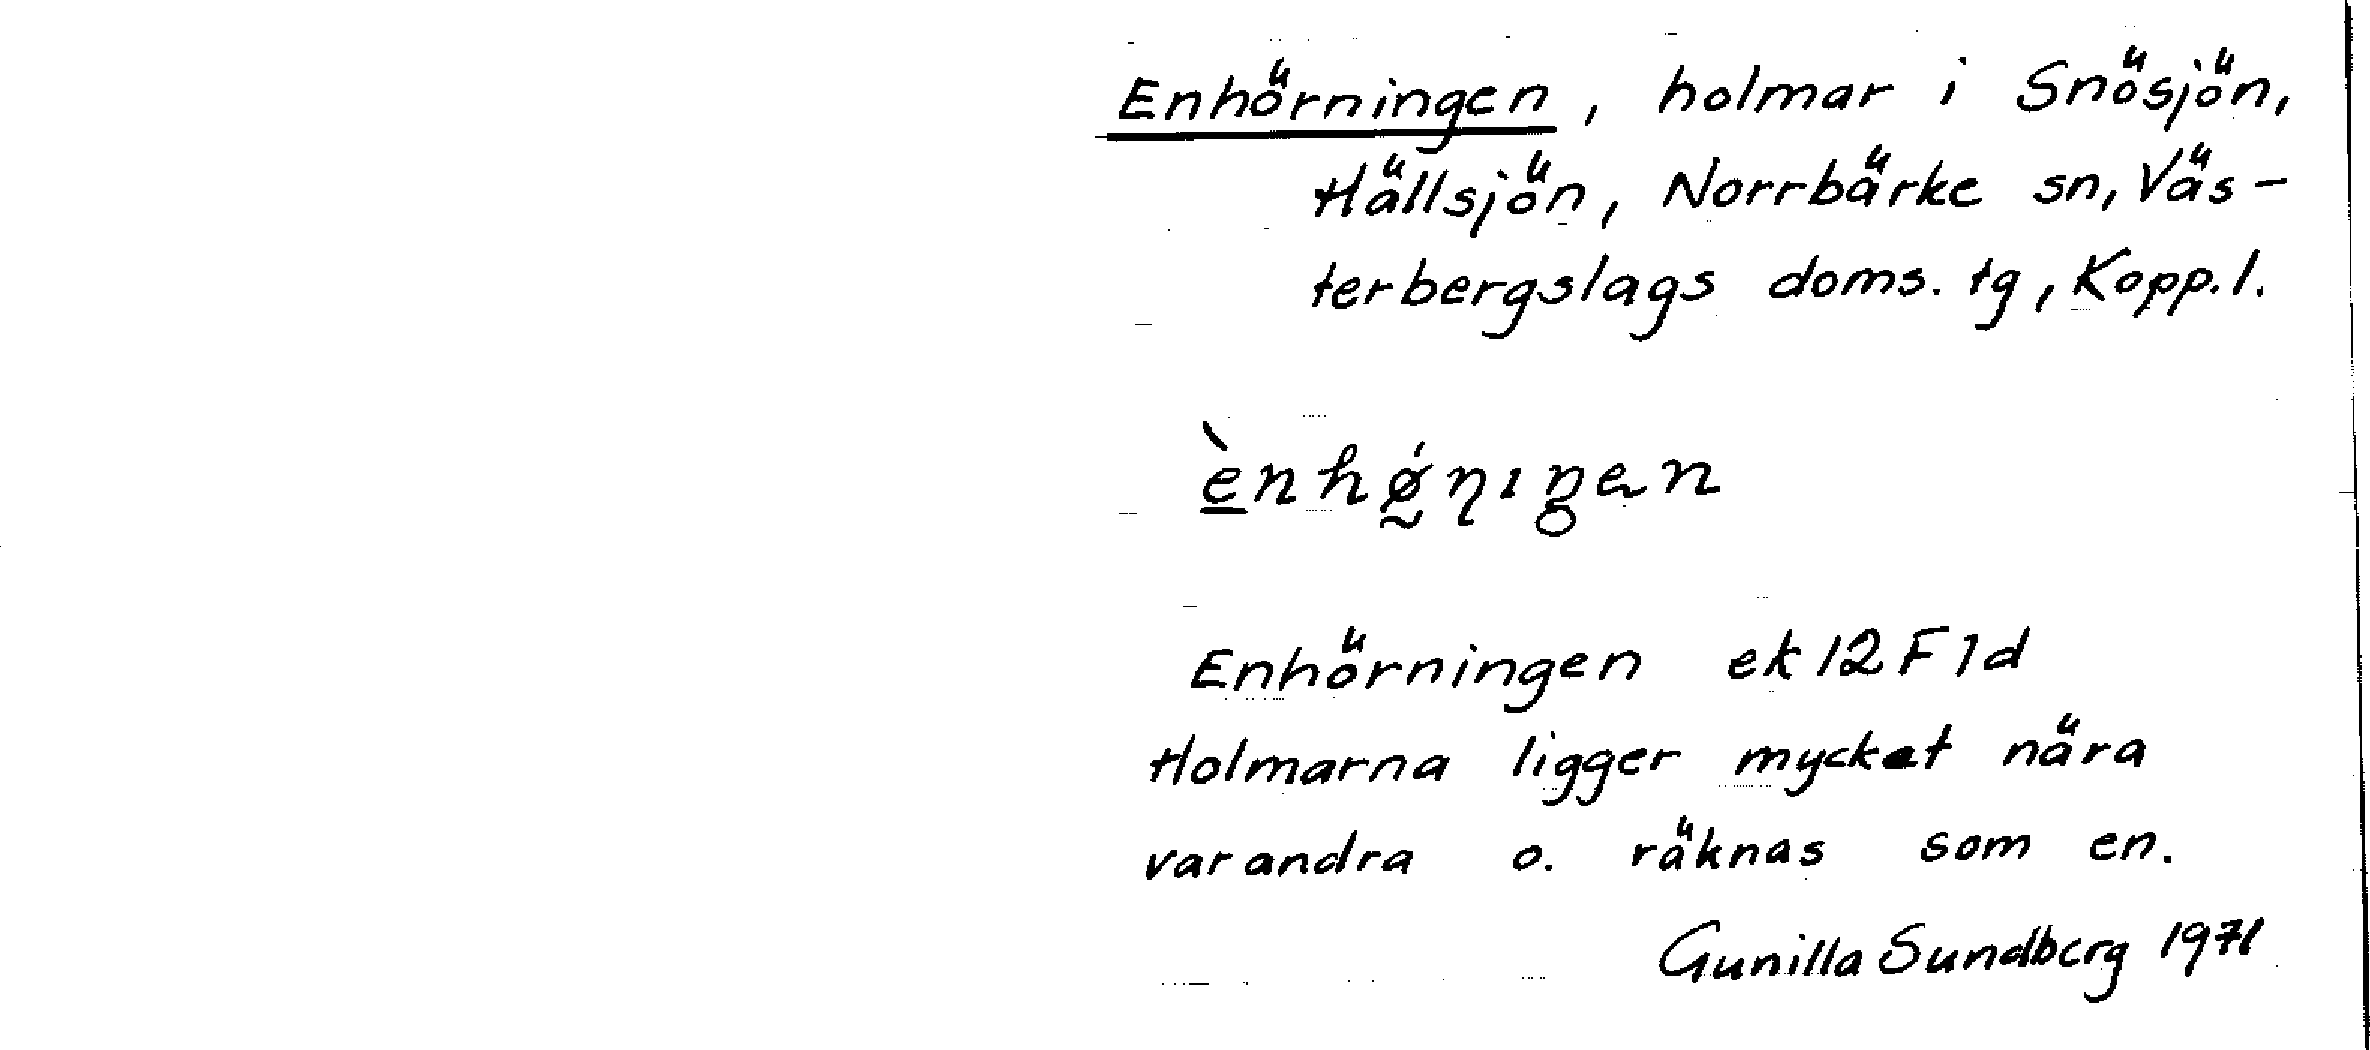 Enhörningen, holmar i Snösjön,
Hällsjön, Norrbärke sn, Väs-
terbergslags doms. tg, Kopp. l.
è̲nhǿ̰ɳıŋen
Enhörningen ek 12 F 1d
Holmarna ligger mycket nära
varandra o. räknas som en.
Gunilla Sundberg 1971